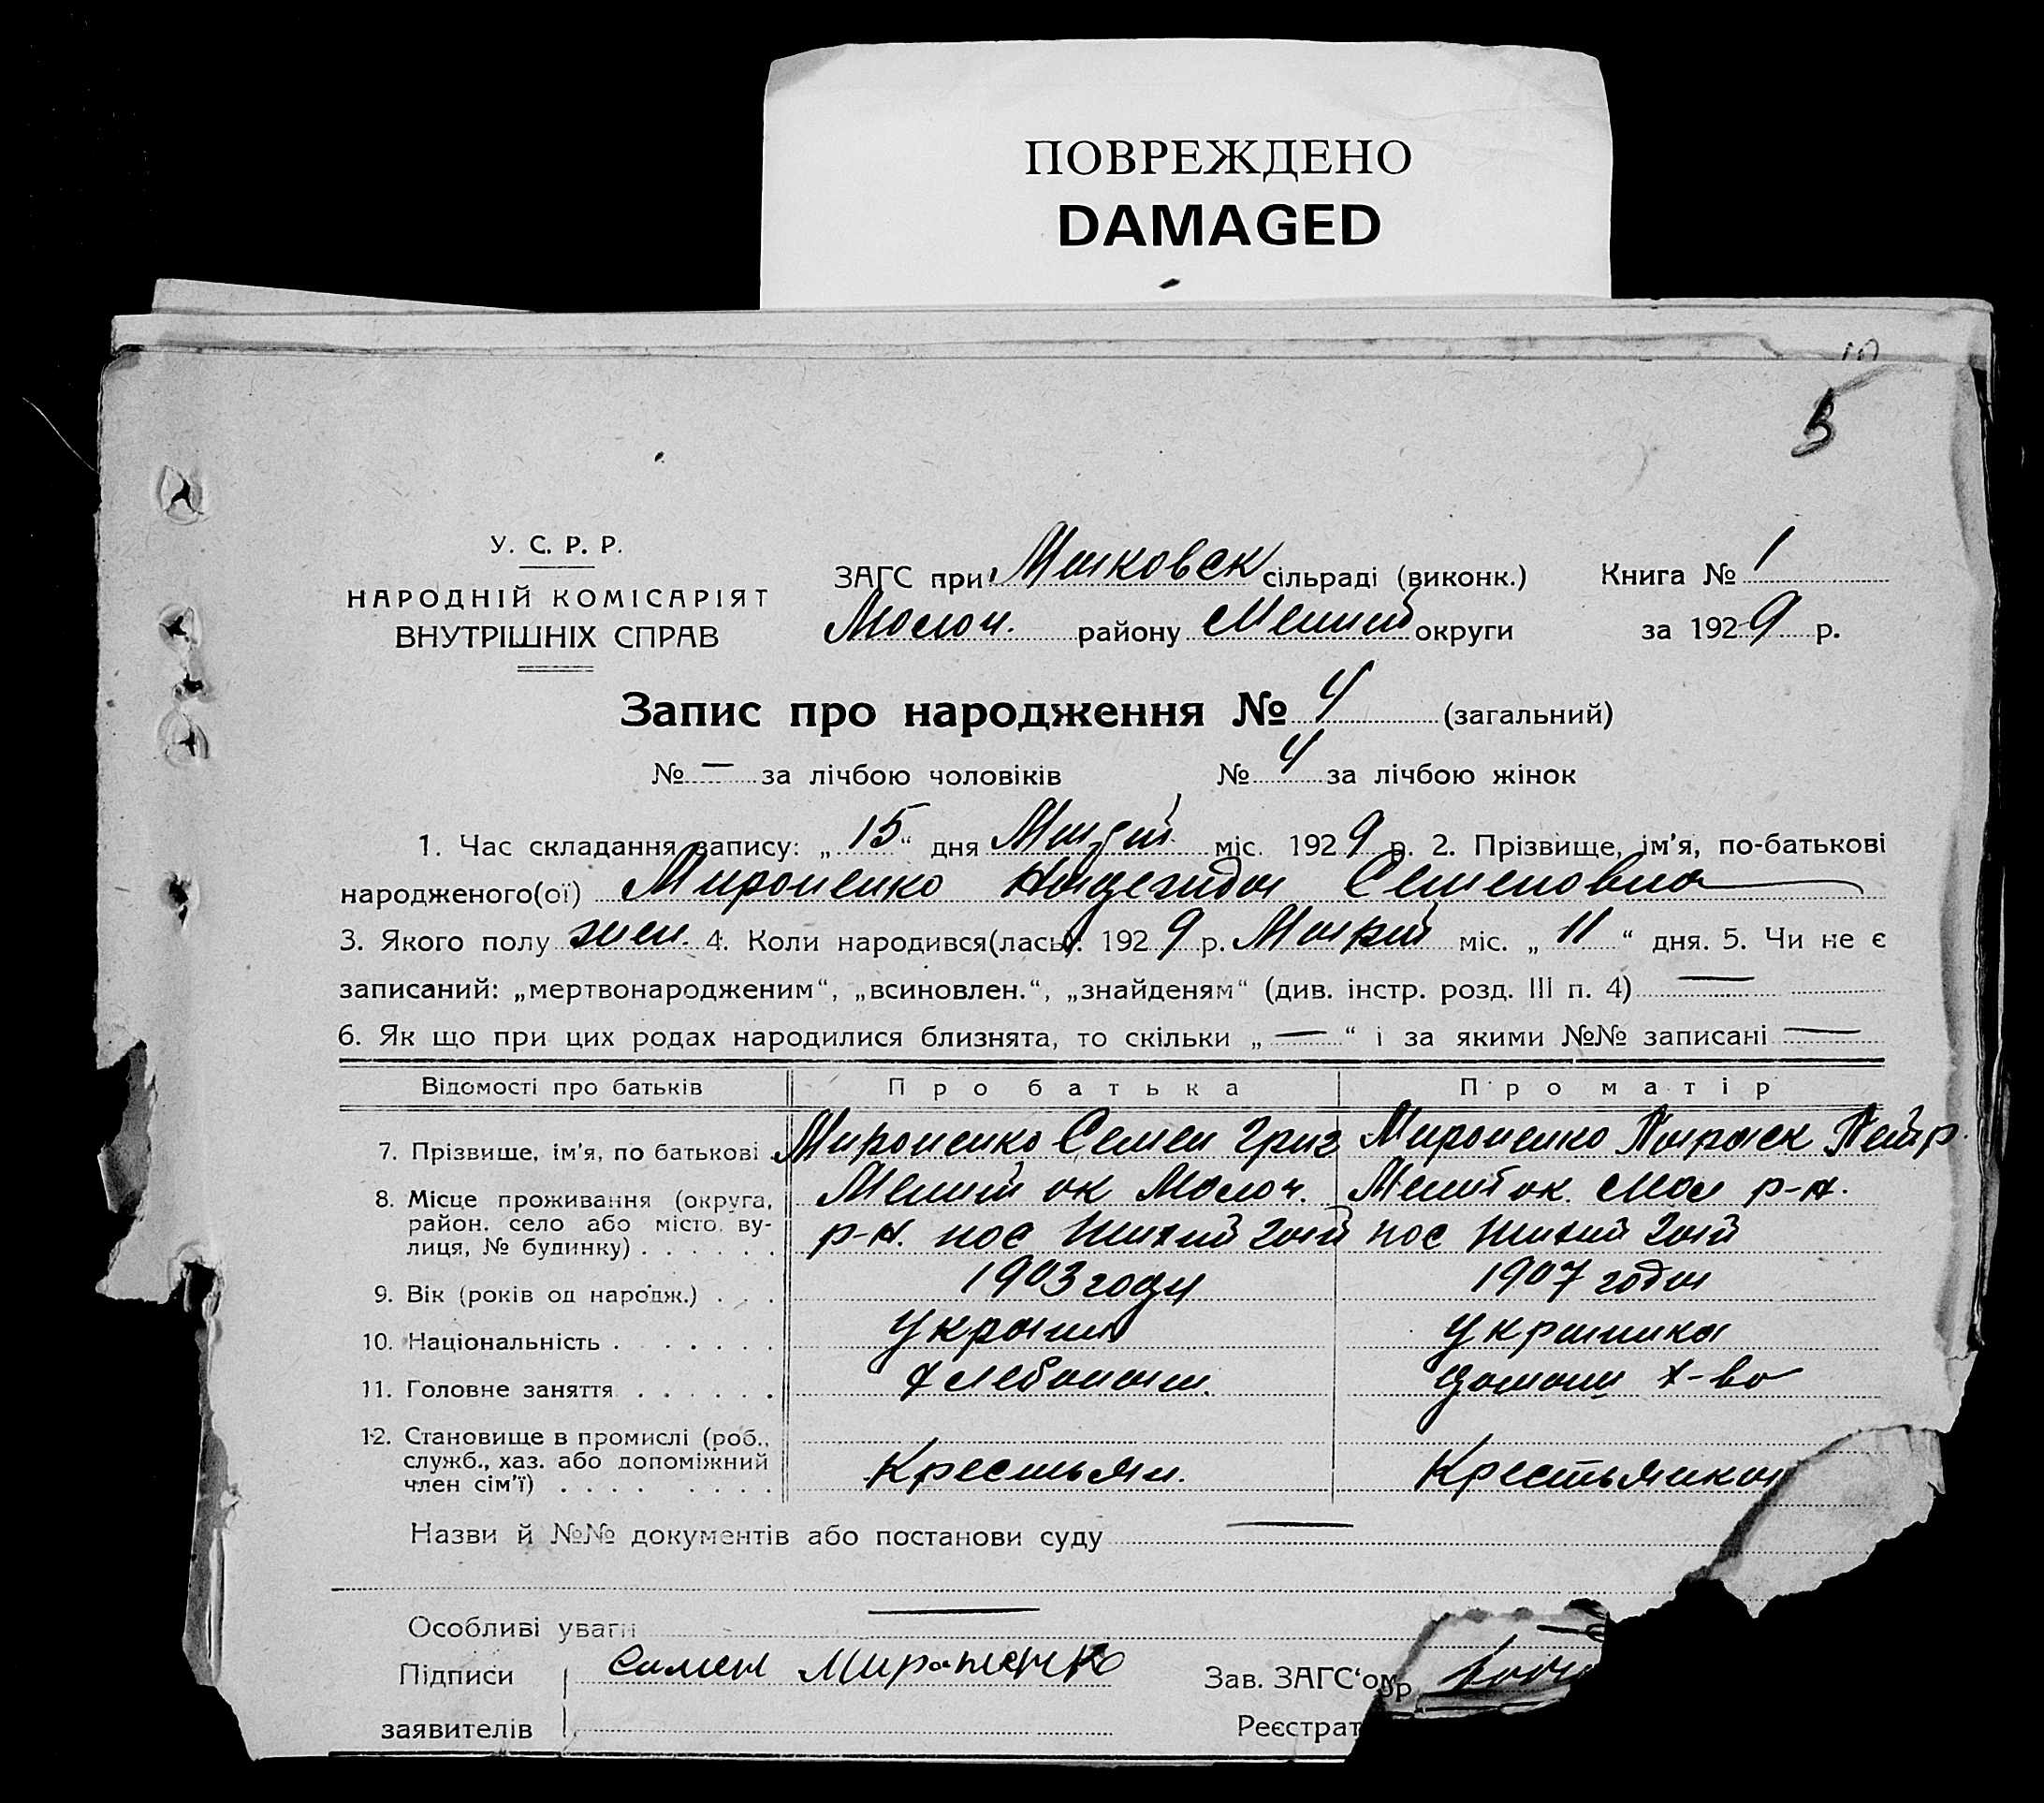 ПОВРЕЖДЕНО
DAMAGED
5
У. С. Р. Р.
НАРОДНІЙ КОМІСАРІЯТ
ВНУТРІШНІХ СПРАВ
ЗАГС при сільраді (виконк.) Книга № 1
Молоч. району Мелит округи за 1929 р.
Запис про народження № 4 (загальний)
№ — за лічбою чоловіків № 4 за лічбою жінок
1. Час складання запису: „15“ дня міс. 1929 р. 2. Прізвище, ім'я, по-батькові
народженого(ої) Мироненко Надежда Семеновна
3. Якого полу жен. 4. Коли народився(лась). 1929 р. міс. „11“ дня. 5. Чи не є
записаний: „мертвонародженим“, „всиновлен.“, „знайденям“ (див. інстр. розд. III п. 4) —
6. Як що при цих родах народилися близнята, то скільки „—“ і за якими №№ записані —
Відомості про батьків Про батька Про матір
7. Прізвище, ім'я, по батькові Мироненко Семен Григ Мироненко Параск Петр.
8. Місце проживання (округа, район, село або місто, ву-лиця, № будинку) Мелит ок Молоч. Мелит ок. Мол р-н.
р-н. пос Тихий Гай пос Тихий Гай
9. Вік (років од народж.) 1903 году 1907 года
10. Національність Украин Украинка
11. Головне заняття Хлебопаш. домаш х-во
12. Становище в промислі (роб., служб., хаз. або допоміжний член сім'ї) Крестьян. Крестьянка
Назви й №№ документів або постанови суду —
Особливі уваги —
Підписи Симен Мироненко Зав. ЗАГС'ом
заявителів Реєстрат